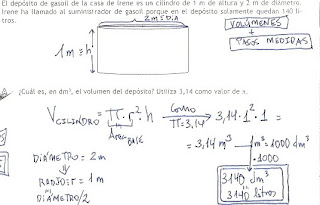 El depósito de gasoil de la casa de Irene es un cilindro de 1 m de altura y 2 m de diámetro.
Irene ha llamado al suministrador de gasoil porque en el depósito solamente quedan 140 li-
tros.
2m=DIA
VOLÚMENES
+
PASOS MEDIDAS
1m=h
¿Cuál es, en dm³, el volumen del depósito? Utiliza 3,14 como valor de π.
V CILINDRO = π·r²·h como π=3,14 3,14·1²·1 =
ÁREA BASE
= 3,14 m³
1m³=1000 dm³
·1000
DIÁMETRO = 2m
RADIO=r = 1m
DIÁMETRO/2
3140 dm³
3140 litros